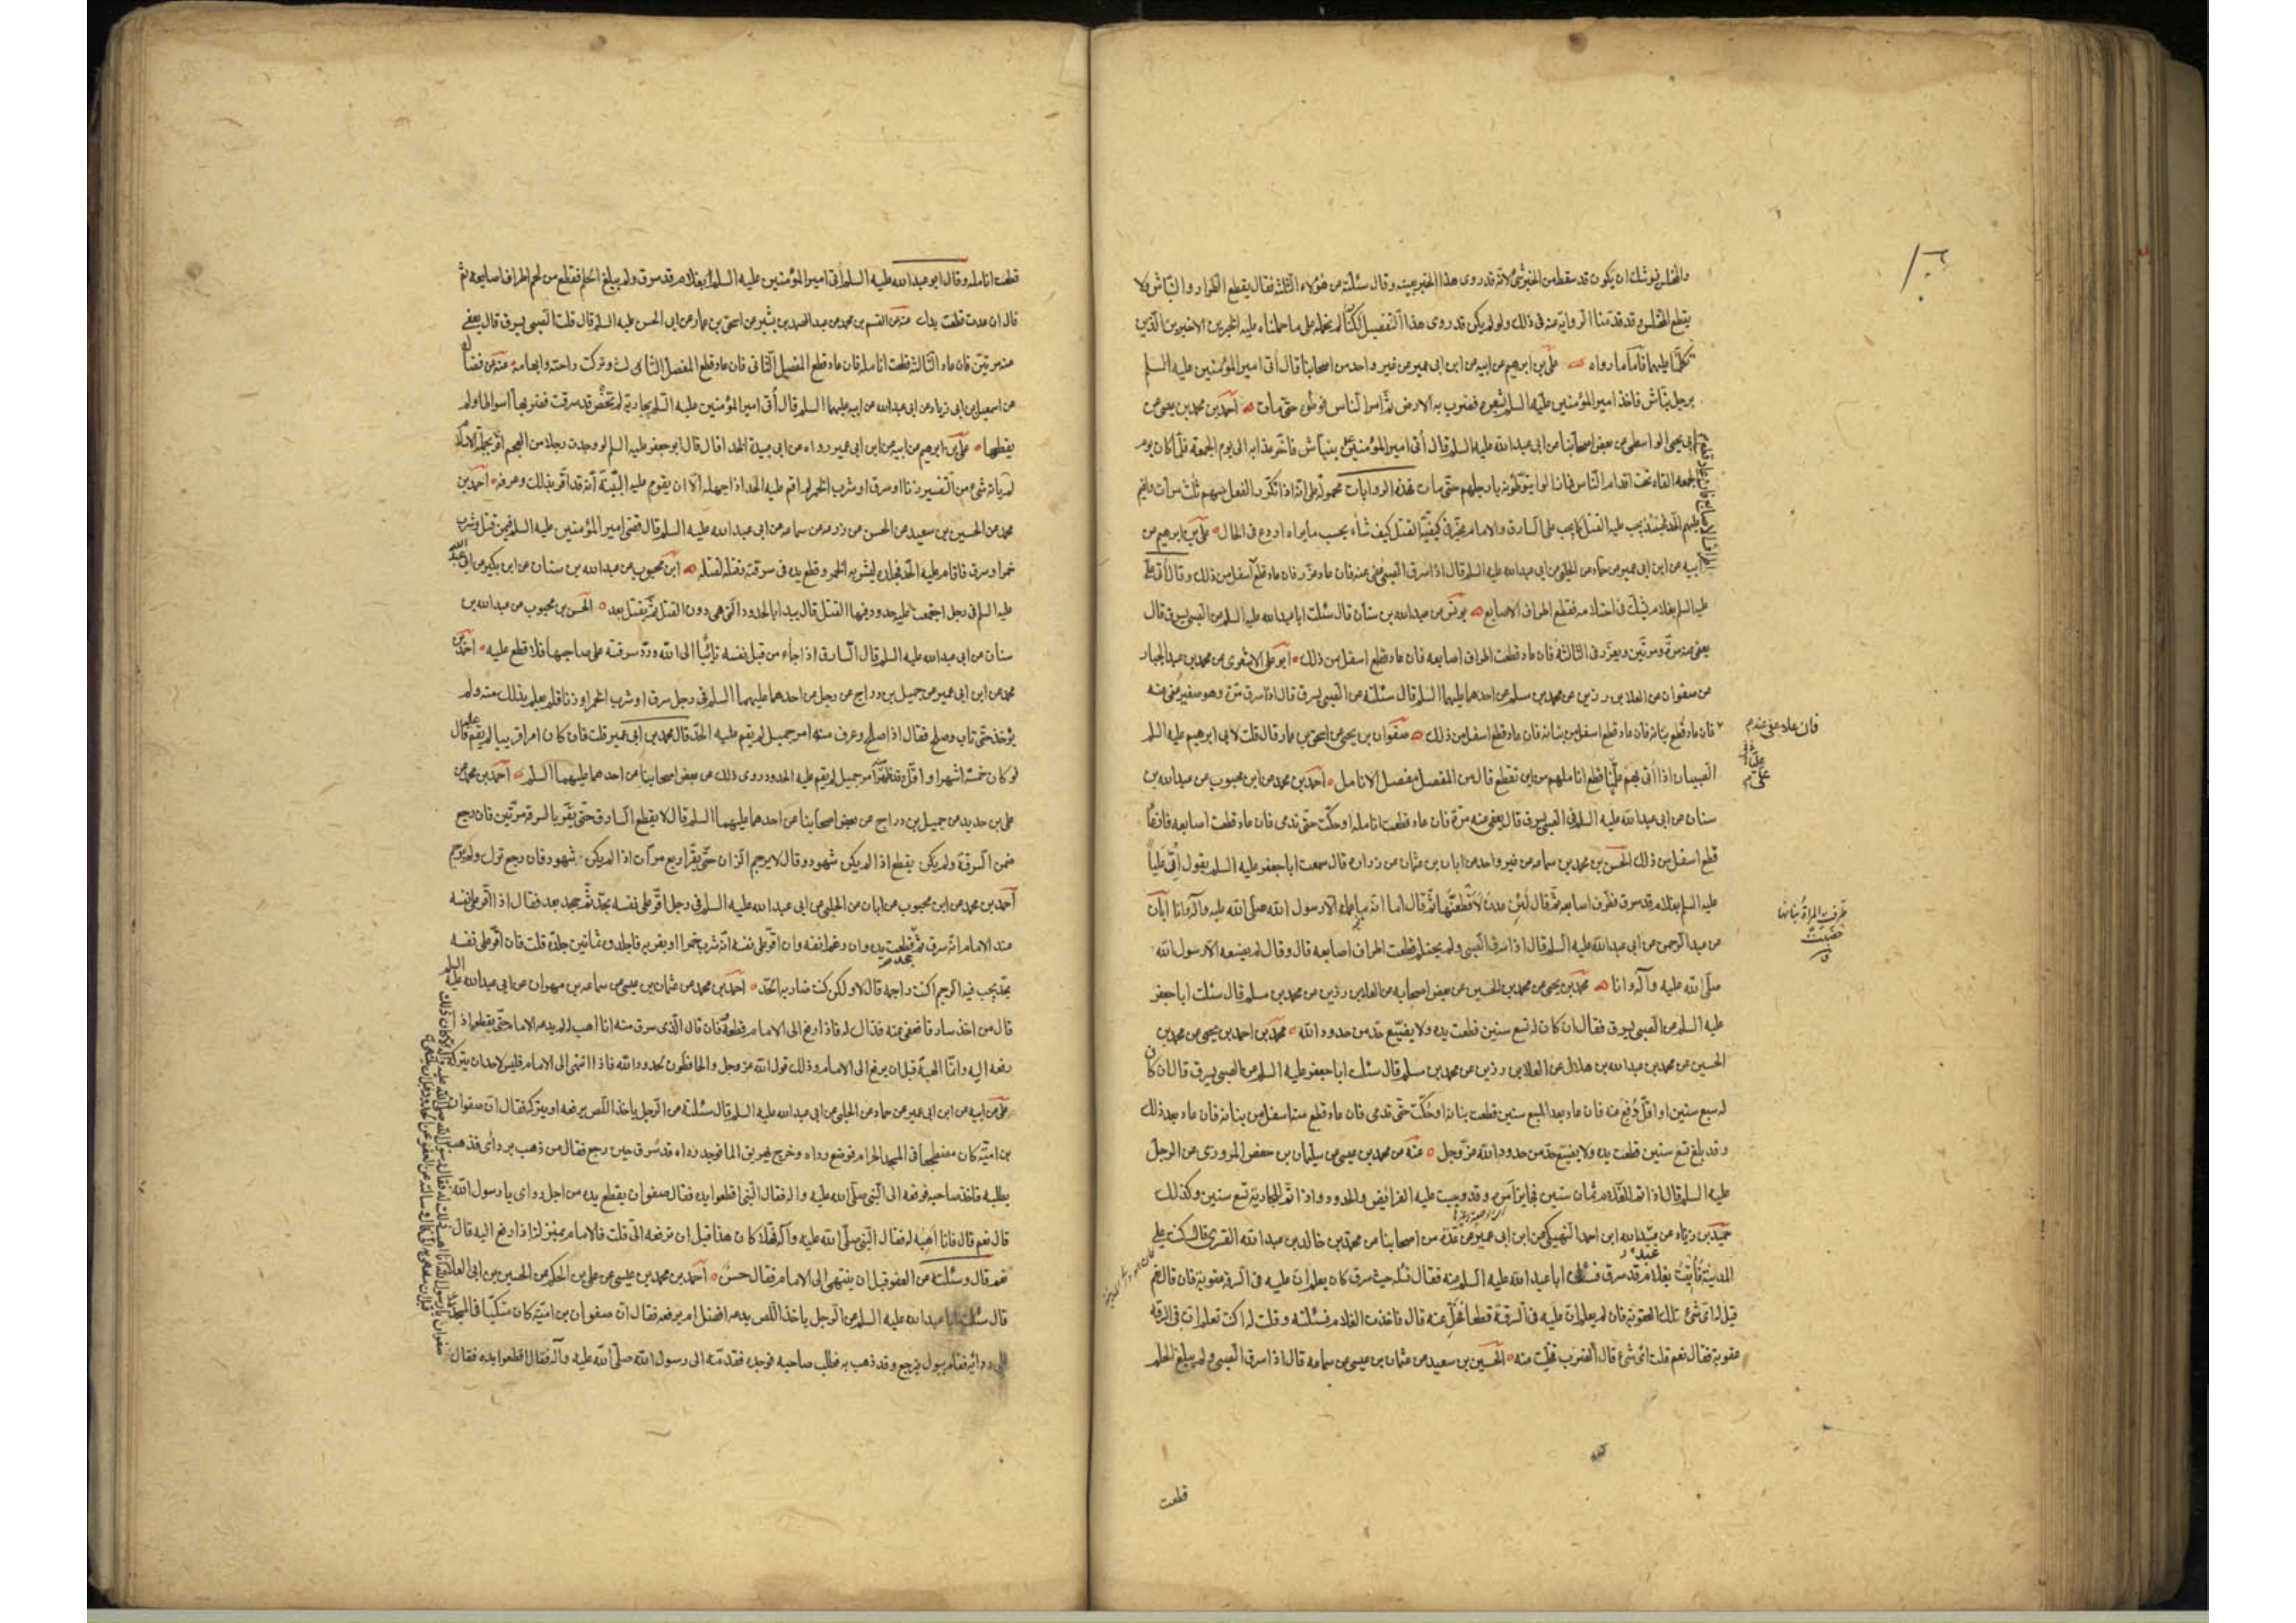 والمختلس يوشك ان يكون قد سقط من الخبر شئ لانه قد روى هذا الخبر بعينه وقال سئلته عن هؤلاء الثلثة فقال يقطع الطرار والنباش ولا
يقطع المختلس وقد قدمنا الرواية منه في ذلك ولو لم يكن قد روى هذا التفصيل لكنا نحمله على ما حملنا عليه الخبرين الاخيرين الذين
تكلمنا عليهما فاما ما رواه علي بن ابرهيم عن ابيه عن ابن ابي عمير عن غير واحد من اصحابنا قال أتى امير المؤمنين عليه السلم
برجل نباش فاخذ امير المؤمنين عليه السلم بشعره فضرب به الارض ثم امر الناس فوطوه حتى مات احمد بن محمد بن يحيى عن
ابي يحيى الواسطي عن بعض اصحابنا عن ابي عبد الله عليه السلم قال أتى امير المؤمنين بنباش فاخر عذابه الى يوم الجمعة فلما كان يوم
الجمعه القاه تحت اقدام الناس فما زالوا يتوطونه بارجلهم حتى مات فهذه الروايات محمولة على انه اذا تكرر الفعل منهم ثلث مرات واقيم
عليهم الحد فحينئذ يجب عليه القتل كما يجب على السارق والامام مخير في كيفية القتل كيف شاء بحسب ما يراه اردع في الحال علي بن ابرهيم عن
ابيه عن ابن ابي عمير عن حماد عن الحلبي عن ابي عبد الله عليه السلم قال اذا سرق الصبي عفى عنه فان عاد عزر فان عاد قطع اسفل من ذلك وقال أتى علي
عليه السلم بغلام يشك في احتلامه فقطع اطراف الاصابع يونس عن عبد الله بن سنان قال سئلت ابا عبد الله عليه السلم عن الصبي يسرق قال
يعفى عنه مرة ومرتين ويعزر في الثالثة فان عاد قطعت اطراف اصابعه فان عاد قطع اسفل من ذلك ابو علي الاشعري عن محمد بن عبد الجبار
عن صفوان عن العلا بن رزين عن محمد بن مسلم عن احدهما عليهما السلم قال سئلته عن الصبي يسرق قال اذا سرق مرة وهو صغير عفى عنه
فان عاد قطع بنانه فان عاد قطع اسفل من بنانه فان عاد قطع اسفل من ذلك صفوان بن يحيى عن اسحق بن عمار قال قلت لابي ابرهيم عليه السلم
الصبيان اذا أتى بهم عليا قطع اناملهم من اين تقطع قال من المفصل مفصل الانامل احمد بن محمد عن ابن محبوب عن عبد الله بن
سنان عن ابي عبد الله عليه السلم في الصبي يسرق قال يعفى عنه مرة فان عاد قطعت انامله او حكت حتى تدمى فان عاد قطعت اصابعه فان عاد
قطع اسفل من ذلك الحسن بن محمد بن سماعه عن غير واحد عن ابان بن عثمان عن زراره قال سمعت ابا جعفر عليه السلم يقول أتى علي
عليه السلم بغلام قد سرق فطرف اصابعه ثم قال لئن عدت لاقطعنها ثم قال اما انه ما عمله الا رسول الله صلى الله عليه وآله وانا ابان
عن عبد الرحمن عن ابي عبد الله عليه السلم قال اذا سرق الصبي ولم يحتلم قطعت اطراف اصابعه قال وقال لم يصنعه الا رسول الله
صلى الله عليه وآله وانا محمد بن يحيى عن محمد بن الحسين عن بعض اصحابه عن العلا بن رزين عن محمد بن مسلم قال سئلت ابا جعفر
عليه السلم عن الصبي يسرق فقال ان كان له تسع سنين قطعت يده ولا يضيع حد من حدود الله محمد بن احمد بن يحيى عن محمد بن
الحسين عن محمد بن عبد الله بن هلال عن العلا بن رزين عن محمد بن مسلم قال سئلت ابا جعفر عليه السلم عن الصبي يسرق قال ان كان
له سبع سنين او اقل دفع عنه فان عاد بعد السبع سنين قطعت بنانه او حكت حتى تدمى فان عاد قطع منه اسفل من بنانه فان عاد بعد ذلك
وقد بلغ تسع سنين قطعت يده ولا يضيع حد من حدود الله عز وجل عنه عن محمد بن عيسى عن سليمان بن حفص المروزي عن الرجل
عليه السلم قال اذا تم للغلام ثمان سنين فجايز امره وقد وجبت عليه الفرائض والحدود واذا تم للجارية تسع سنين وكذلك
حميد بن زياد عن عبيد الله ابن احمد النهيكي عن ابن ابي عمير عن عدة من اصحابنا عن محمد بن خالد بن عبد الله القسري قال كنت على
المدينة فأتيت بغلام قد سرق فسئلت ابا عبد الله عليه السلم عنه فقال سله حيث سرق كان يعلم ان عليه في السرقة عقوبة فان قال نعم
قيل له اي شئ تلك العقوبة فان لم يعلم ان عليه في السرقة قطعا فخل عنه قال فاخذت الغلام فسئلته وقلت له اكنت تعلم ان في السرقة
عقوبة فقال نعم قلت اي شئ قال الضرب فخليت عنه الحسين بن سعيد عن عثمان بن عيسى عن سماعه قال اذا سرق الصبي ولم يبلغ الحلم
قطعت
فان عاد عفى عنه
طرفت المراة بنانها
خضبت
قطعت انامله وقال ابو عبد الله عليه السلم أتى امير المؤمنين عليه السلم بغلام قد سرق ولم يبلغ الحلم فقطع من لحم اطراف اصابعه ثم
قال ان عدت قطعت يدك عنه عن القسم بن محمد عن عبد الصمد بن بشير عن اسحق بن عمار عن ابي الحسن عليه السلم قال قلت الصبي يسرق قال يعفى
عنه مرتين فان عاد الثالثة قطعت انامله فان عاد قطع المفصل الثاني فان عاد قطع المفصل الثالث وتركت راحته وابهامه عنه عن فضالة
عن اسمعيل بن ابي زياد عن ابي عبد الله عن ابيه عليهما السلم قال أتى امير المؤمنين عليه السلم بجارية لم تحض قد سرقت فضربها اسواطا ولم
يقطعها علي بن ابرهيم عن ابيه عن ابن ابي عمير رواه عن ابي عبيدة الحذاء قال قال ابو جعفر عليه السلم لو وجدت رجلا من العجم اقر بجملة الاسلام
لم يأته شئ من التفسير زنا او سرق او شرب الخمر لم اقم عليه الحد اذا جهله الا ان يقوم عليه البينة أنه قد اقر بذلك وعرفه احمد بن
محمد عن الحسين بن سعيد عن الحسن عن زرعه عن سماعه عن ابي عبد الله عليه السلم قال قضى امير المؤمنين عليه السلم فيمن قتل وشرب
خمرا وسرق فاقام عليه الحد فجلده لشربه الخمر وقطع يده في سرقته وقتله لقتله ابن محبوب عن عبد الله بن سنان عن ابن بكير عن ابي عبد الله
عليه السلم في رجل اجتمعت عليه حدود فيها القتل قال يبدا بالحدود التي هي دون القتل ثم يقتل بعد الحسن بن محبوب عن عبد الله بن
سنان عن ابي عبد الله عليه السلم قال السارق اذا جاء من قبل نفسه تائبا الى الله ورد سرقته على صاحبها فلا قطع عليه احمد بن
محمد عن ابن ابي عمير عن جميل بن دراج عن رجل عن احدهما عليهما السلم في رجل سرق او شرب الخمر او زنا فلم يعلم بذلك منه ولم
يؤخذ حتى تاب وصلح فقال اذا صلح وعرف منه امر جميل لم يقم عليه الحد قال محمد بن ابي عمير قلت فان كان امرا قريبا لم يقم قال
لو كان خمسة اشهر او اقل وقد ظهر امر جميل لم يقم عليه الحدود روى ذلك عن بعض اصحابنا عن احدهما عليهما السلم احمد بن محمد عن
علي بن حديد عن جميل بن دراج عن بعض اصحابنا عن احدهما عليهما السلم قال لا يقطع السارق حتى يقر بالسرقة مرتين فان رجع
ضمن السرقة ولم يكن يقطع اذا لم يكن شهود وقال لا يرجم الزاني حتى يقر اربع مرات اذا لم يكن شهود فان رجع ترك ولم يرجم
احمد بن محمد عن ابن محبوب عن ابان عن الحلبي عن ابي عبد الله عليه السلم في رجل اقر على نفسه بحد ثم جحد بعد فقال اذا اقر على نفسه
عند الامام انه سرق ثم جحد قطعت يده وان رغم انفه وان اقر على نفسه انه شرب خمرا او بفرية فاجلدوه ثمانين جلدة قلت فان اقر على نفسه
بحد يجب فيه الرجم اكنت راجمه قال لا ولكن كنت ضاربه الحد احمد بن محمد عن عثمان بن عيسى عن سماعه بن مهران عن ابي عبد الله عليه السلم
قال من اخذ سارقا فعفى عنه فذاك له فاذا رفع الى الامام قطعه فان قال الذي سرق منه انا اهب له لم يدعه الامام حتى يقطعه اذا
رفعه اليه وانما الهبة قبل ان يرفع الى الامام وذلك قول الله عز وجل والحافظون لحدود الله فاذا انتهى الى الامام فليس لاحد ان يتركه
علي عن ابيه عن ابن ابي عمير عن حماد عن الحلبي عن ابي عبد الله عليه السلم قال سئلته عن الرجل ياخذ اللص يرفعه او يتركه فقال ان صفوان
بن امية كان مضطجعا في المسجد الحرام فوضع رداه وخرج يهريق الما فوجد رداه قد سرق حين رجع فقال من ذهب بردائي فذهب
يطلبه فاخذ صاحبه فرفعه الى النبي صلى الله عليه واله فقال النبي اقطعوا يده فقال صفوان يقطع يده من اجل رداي يا رسول الله
قال نعم قال فانا اهبه له فقال النبي صلى الله عليه وآله فهلا كان هذا قبل ان ترفعه الي قلت فالامام بمنزلته اذا رفع اليه قال
نعم قال وسئلته عن العفو قبل ان ينتهي الى الامام فقال حسن احمد بن محمد بن عيسى عن علي بن الحكم عن الحسين بن ابي العلا
قال سئلت ابا عبد الله عليه السلم عن الرجل ياخذ اللص يدعه افضل ام يرفعه فقال ان صفوان بن امية كان متكيا في المسجد
على ردائه فقام يبول فرجع وقد ذهب به فطلب صاحبه فوجده فقدمه الى رسول الله صلى الله عليه وآله فقال اقطعوا يده فقال